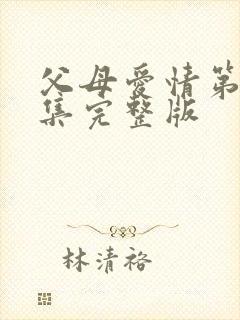 父母爱情第
集完整版
林清裕